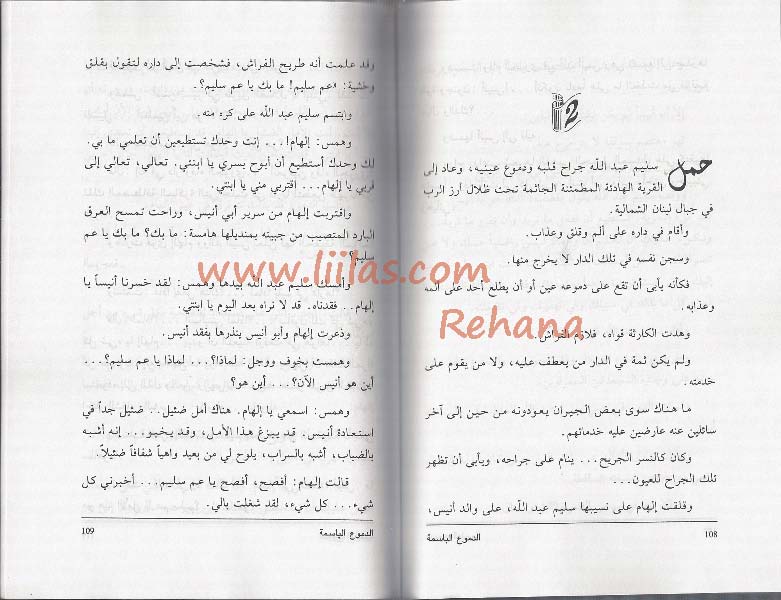 2
حمل سليم عبد الله جراح قلبه ودموع عينيه، وعاد إلى
القرية الهادئة المطمئنة الجاثمة تحت ظلال أرز الرب
في جبال لبنان الشمالية.
وأقام في داره على ألم وقلق وعذاب.
وسجن نفسه في تلك الدار لا يخرج منها.
فكأنه يأبى أن تقع على دموعه عين أو أن يطلع أحد على ألمه
وعذابه.
وهدت الكارثة قواه، فلازم الفراش.
ولم يكن ثمة في الدار من يعطف عليه، ولا من يقوم على
خدمته.
ما هناك سوى بعض الجيران يعودونه من حين إلى آخر
سائلين عنه عارضين عليه خدماتهم.
وكان كالنسر الجريح... ينام على جراحه، ويأبى أن تظهر
تلك الجراح للعيون...
وقلقت إلهام على نسيبها سليم عبد الله، على والد أنيس،
108
الدموع الباسمة
وقد علمت أنه طريح الفراش، فشخصت إلى داره لتقول بقلق
وخشية: «عم سليم! ما بك يا عم سليم؟.
وابتسم سليم عبد الله على كره منه.
وهمس: إلهام!... إنت وحدك تستطيعين أن تعلمي ما بي.
لك وحدك أستطيع أن أبوح بسري يا ابنتي. تعالي، تعالي إلى
قربي يا إلهام... اقتربي مني يا ابنتي.
واقتربت إلهام من سرير أبي أنيس، وراحت تمسح العرق
البارد المتصبب من جبينه بمنديلها هامسة: ما بك؟ ما بك يا عم
سليم؟
وأمسك سليم عبد الله بيدها وهمس: لقد خسرنا أنيساً يا
إلهام.. فقدناه. قد لا نراه بعد اليوم يا ابنتي.
وذعرت إلهام وأبو أنيس ينذرها بفقد أنيس.
وهمست بخوف ووجل: لماذا؟... لماذا يا عم سليم؟...
أين هو أنيس الآن؟... أين هو؟
وهمس: اسمعي يا إلهام. هناك أمل ضئيل.. ضئيل جداً في
استعادة أنيس. قد يبزغ هذا الأمل، وقد يخبو... إنه أشبه
بالضباب، أشبه بالسراب، يلوح لي من بعيد واهياً شفافاً ضئيلاً.
قالت إلهام: أفصح، أفصح يا عم سليم... أخبرني كل
شيء... كل شيء، لقد شغلت بالي.
الدموع الباسمة
109
www.liilas.com
Rehana